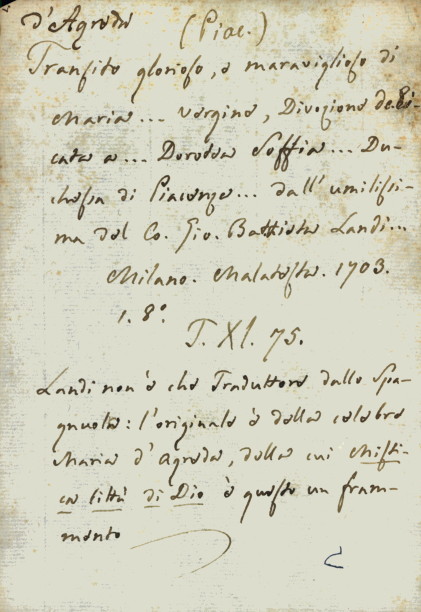 d'Agreda (Piac.)
Transito glorioso, e maraviglioso di
Maria... vergine, Divozione dedi-
cata a... Dorotea Soffia... Du-
chessa di Piacenza... dall' umilissi-
ma del Co. Gio. Battista Landi...
Milano. Malatesta. 1703.
1. 8.º
T. XI. 75.
Landi non è che Traduttore dallo Spa-
gnuolo: l'originale è della celebre
Maria d'Agreda, della cui Misti-
ca Città di Dio è questo un fram-
mento